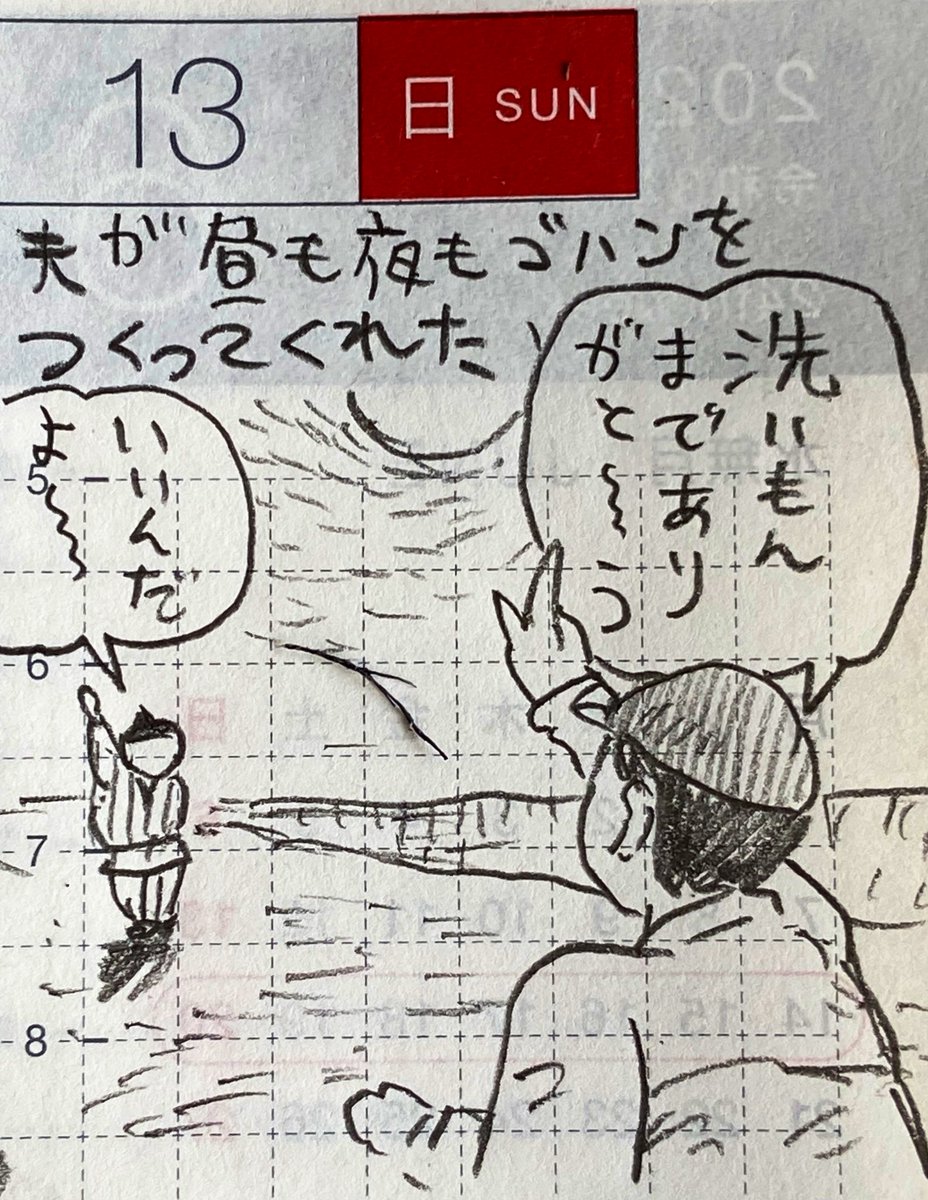 13
日 SUN
夫が昼も夜もゴハンを
つくってくれた
洗いもん
までであり
がと〜う
いいんだ
よ〜〜
5
6
7
8